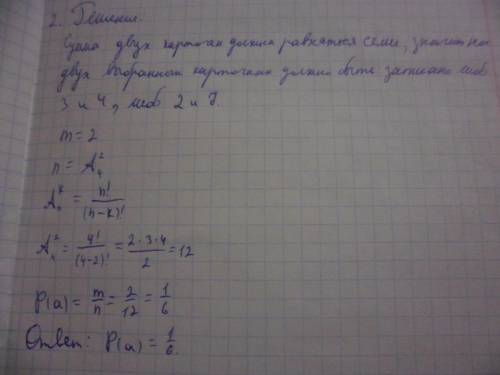 2. Решение.
Сумма двух карточек должна равняться семи, значит на
двух выбранных карточках должно быть записано либо
3 и 4, либо 2 и 5.
m = 2
n = A₄²
Aₙᵏ = n!/(n-k)!
A₄² = 4!/(4-2)! = 2·3·4/2 = 12
P(a) = m/n = 2/12 = 1/6
Ответ: P(a) = 1/6.